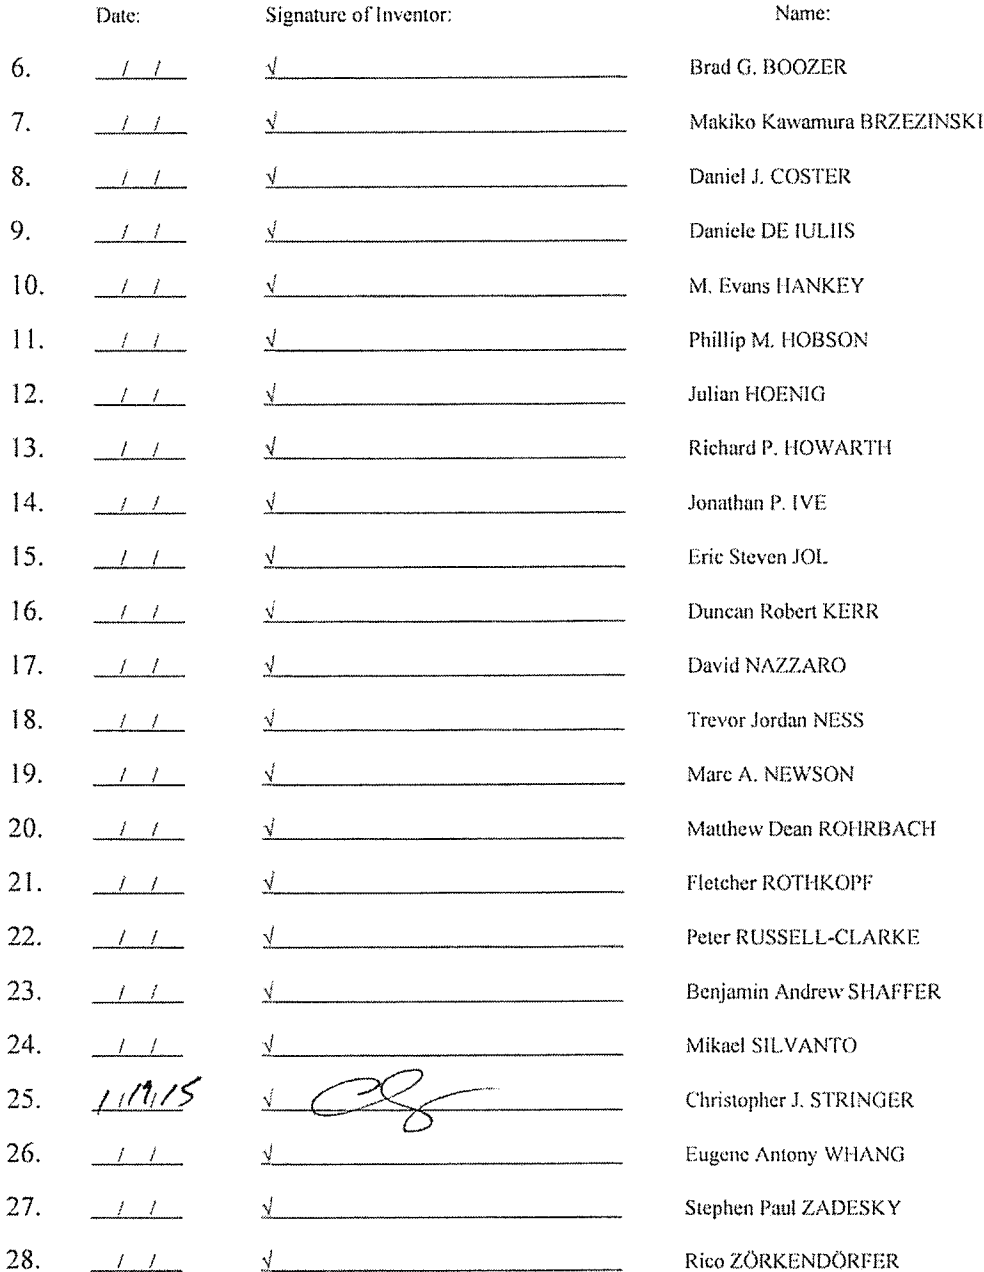 Date: Signature of Inventor: Name:
6. / / √ Brad G. BOOZER
7. / / √ Makiko Kawamura BRZEZINSKI
8. / / √ Daniel J. COSTER
9. / / √ Daniele DE IULIIS
10. / / √ M. Evans HANKEY
11. / / √ Phillip M. HOBSON
12. / / √ Julian HOENIG
13. / / √ Richard P. HOWARTH
14. / / √ Jonathan P. IVE
15. / / √ Eric Steven JOL
16. / / √ Duncan Robert KERR
17. / / √ David NAZZARO
18. / / √ Trevor Jordan NESS
19. / / √ Marc A. NEWSON
20. / / √ Matthew Dean ROHRBACH
21. / / √ Fletcher ROTHKOPF
22. / / √ Peter RUSSELL-CLARKE
23. / / √ Benjamin Andrew SHAFFER
24. / / √ Mikael SILVANTO
25. 1/19/15 √ Christopher J. STRINGER
26. / / √ Eugene Antony WHANG
27. / / √ Stephen Paul ZADESKY
28. / / √ Rico ZÖRKENDÖRFER